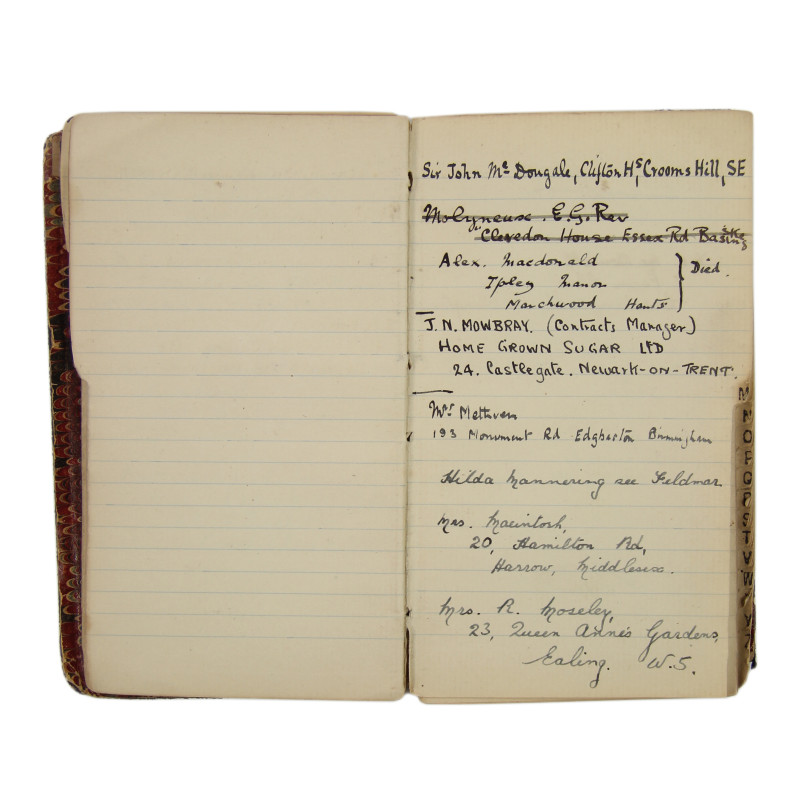 Sir John Mc Dougale, Clifton Hs, Crooms Hill, SE
Molyneux. E.G. Rev
Clevedon House Essex Rd Basingstoke
Alex. Macdonald
Ipley Manor
Marchwood Hants
Died.
J. N. MOWBRAY. (Contracts Manager)
HOME GROWN SUGAR LTD
24. Castlegate. NEWARK-ON-TRENT.
Mrs Methven
193 Monument Rd Edgbaston Birmingham
Hilda Mannering see Feldmar
Mrs. Macintosh,
20, Hamilton Rd,
Harrow, Middlesex.
Mrs. R. Moseley,
23, Queen Anne's Gardens,
Ealing. W.5.
M
N
O
P
Q
R
S
T
V
W
Y